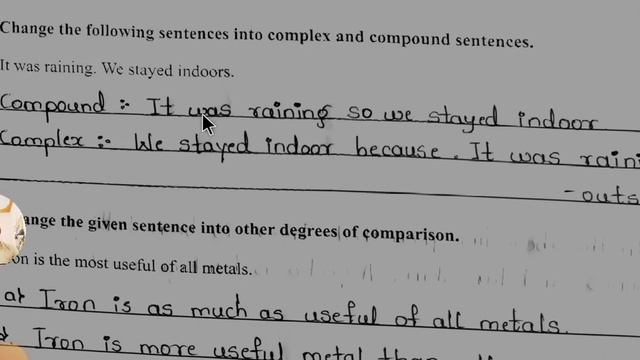 Change the following sentences into complex and compound sentences.
It was raining. We stayed indoors.
Compound :- It was raining so we stayed indoor
Complex :- We stayed indoor because. It was raini
- outs
ange the given sentence into other degrees of comparison.
on is the most useful of all metals.
Iron is as much as useful of all metals.
Iron is more useful metal than